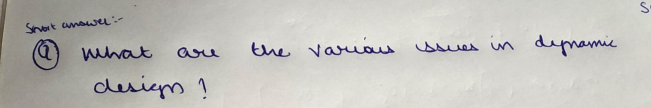 Short answer:-
Q What are the various issues in dynamic
design?
S